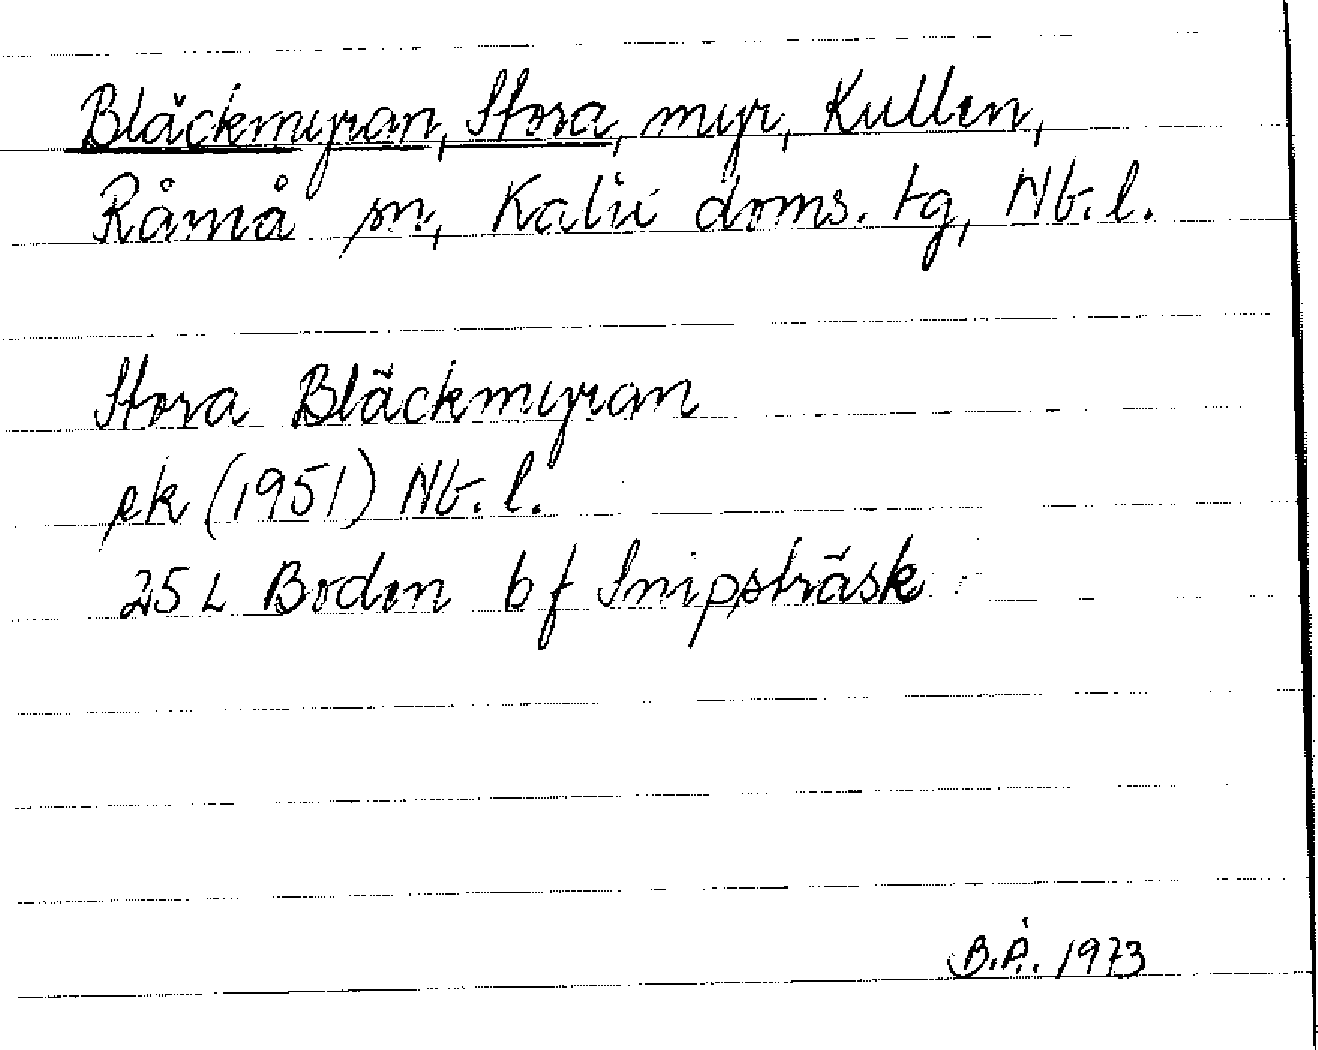 Bläckmyran, Stora, myr, Kullen,
Råneå sn, Kalix doms. tg, Nb. l.
Stora Bläckmyran
ek (1951) Nb. l.
25 L Boden bf Snipträsk
B.Å. 1973